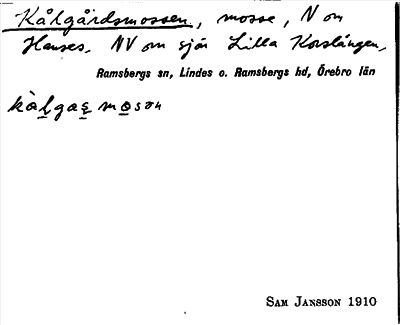 Kålgårdsmossen, mosse, N om
Hanses. NV om sjön Lilla Korslången,
Ramsbergs sn, Lindes o. Ramsbergs hd, Örebro län
kàl̥gaʂ mo̲sən
SAM JANSSON 1910